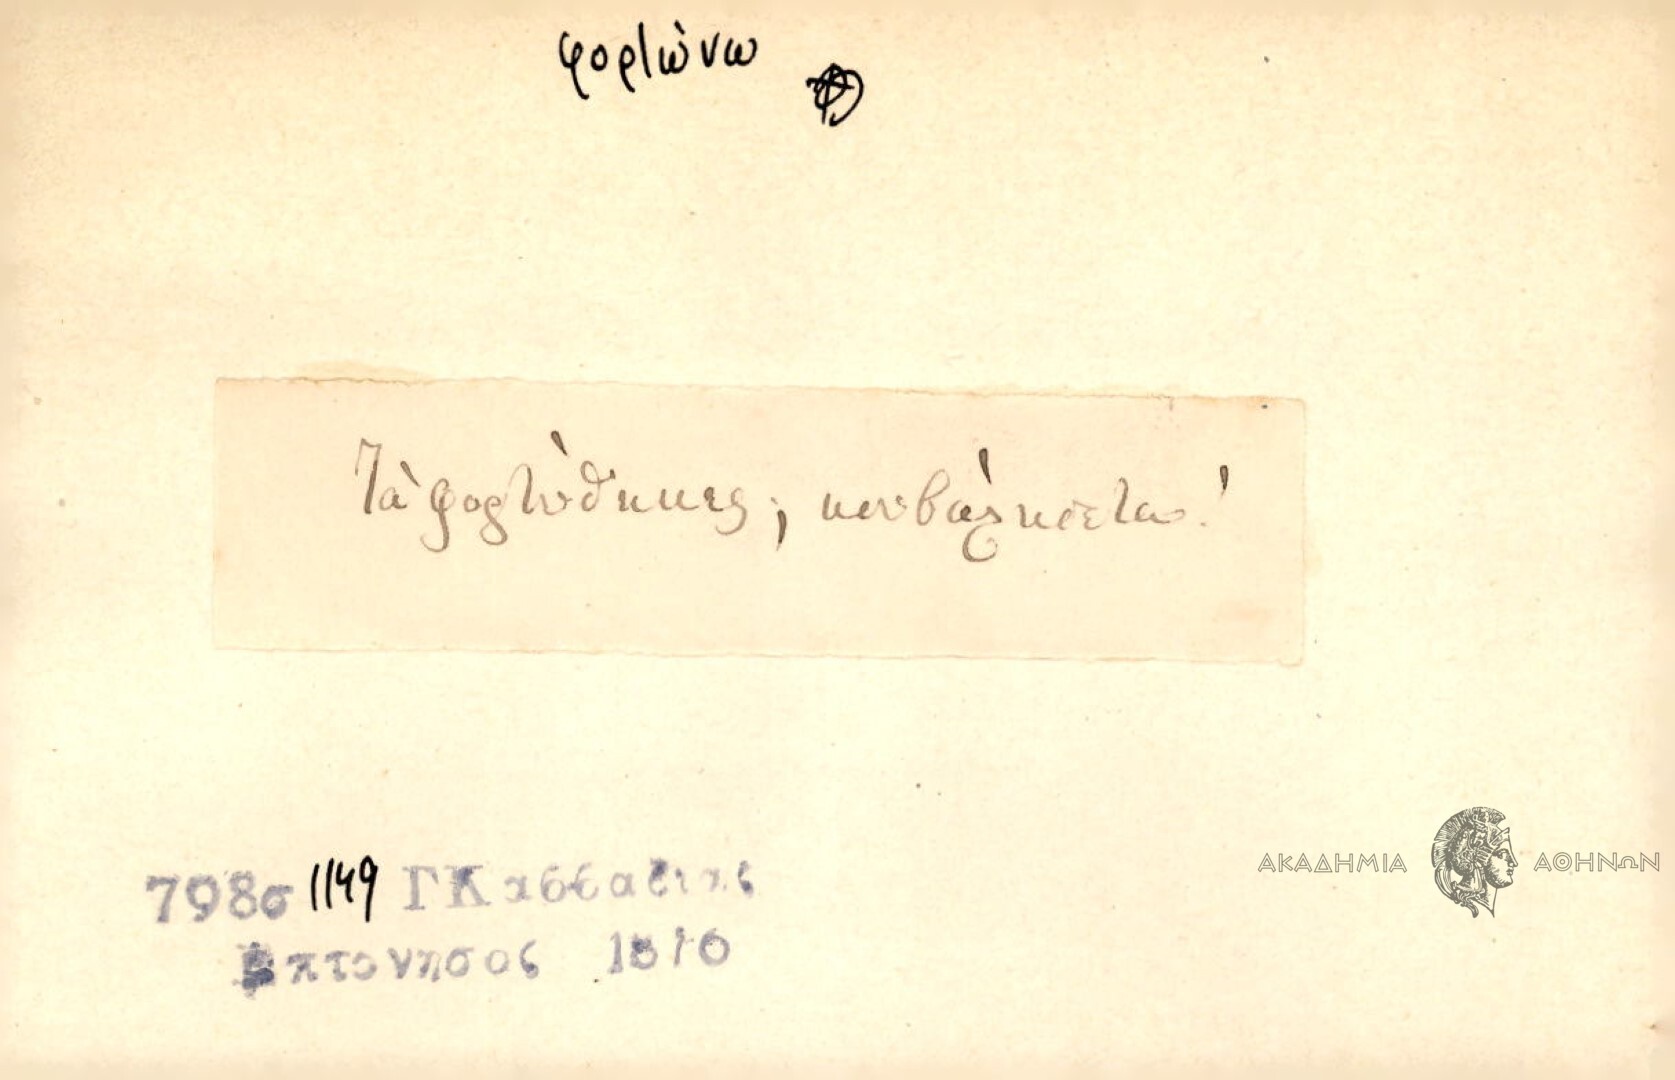 φορτώνω
Τὰ φορτώθηκες; κουβάλησέτα!
798σ 1149 ΓΚασσαδιας
Επτανησος 1876
ΑΚΑΔΗΜΙΑ ΑΘΗΝΩΝ